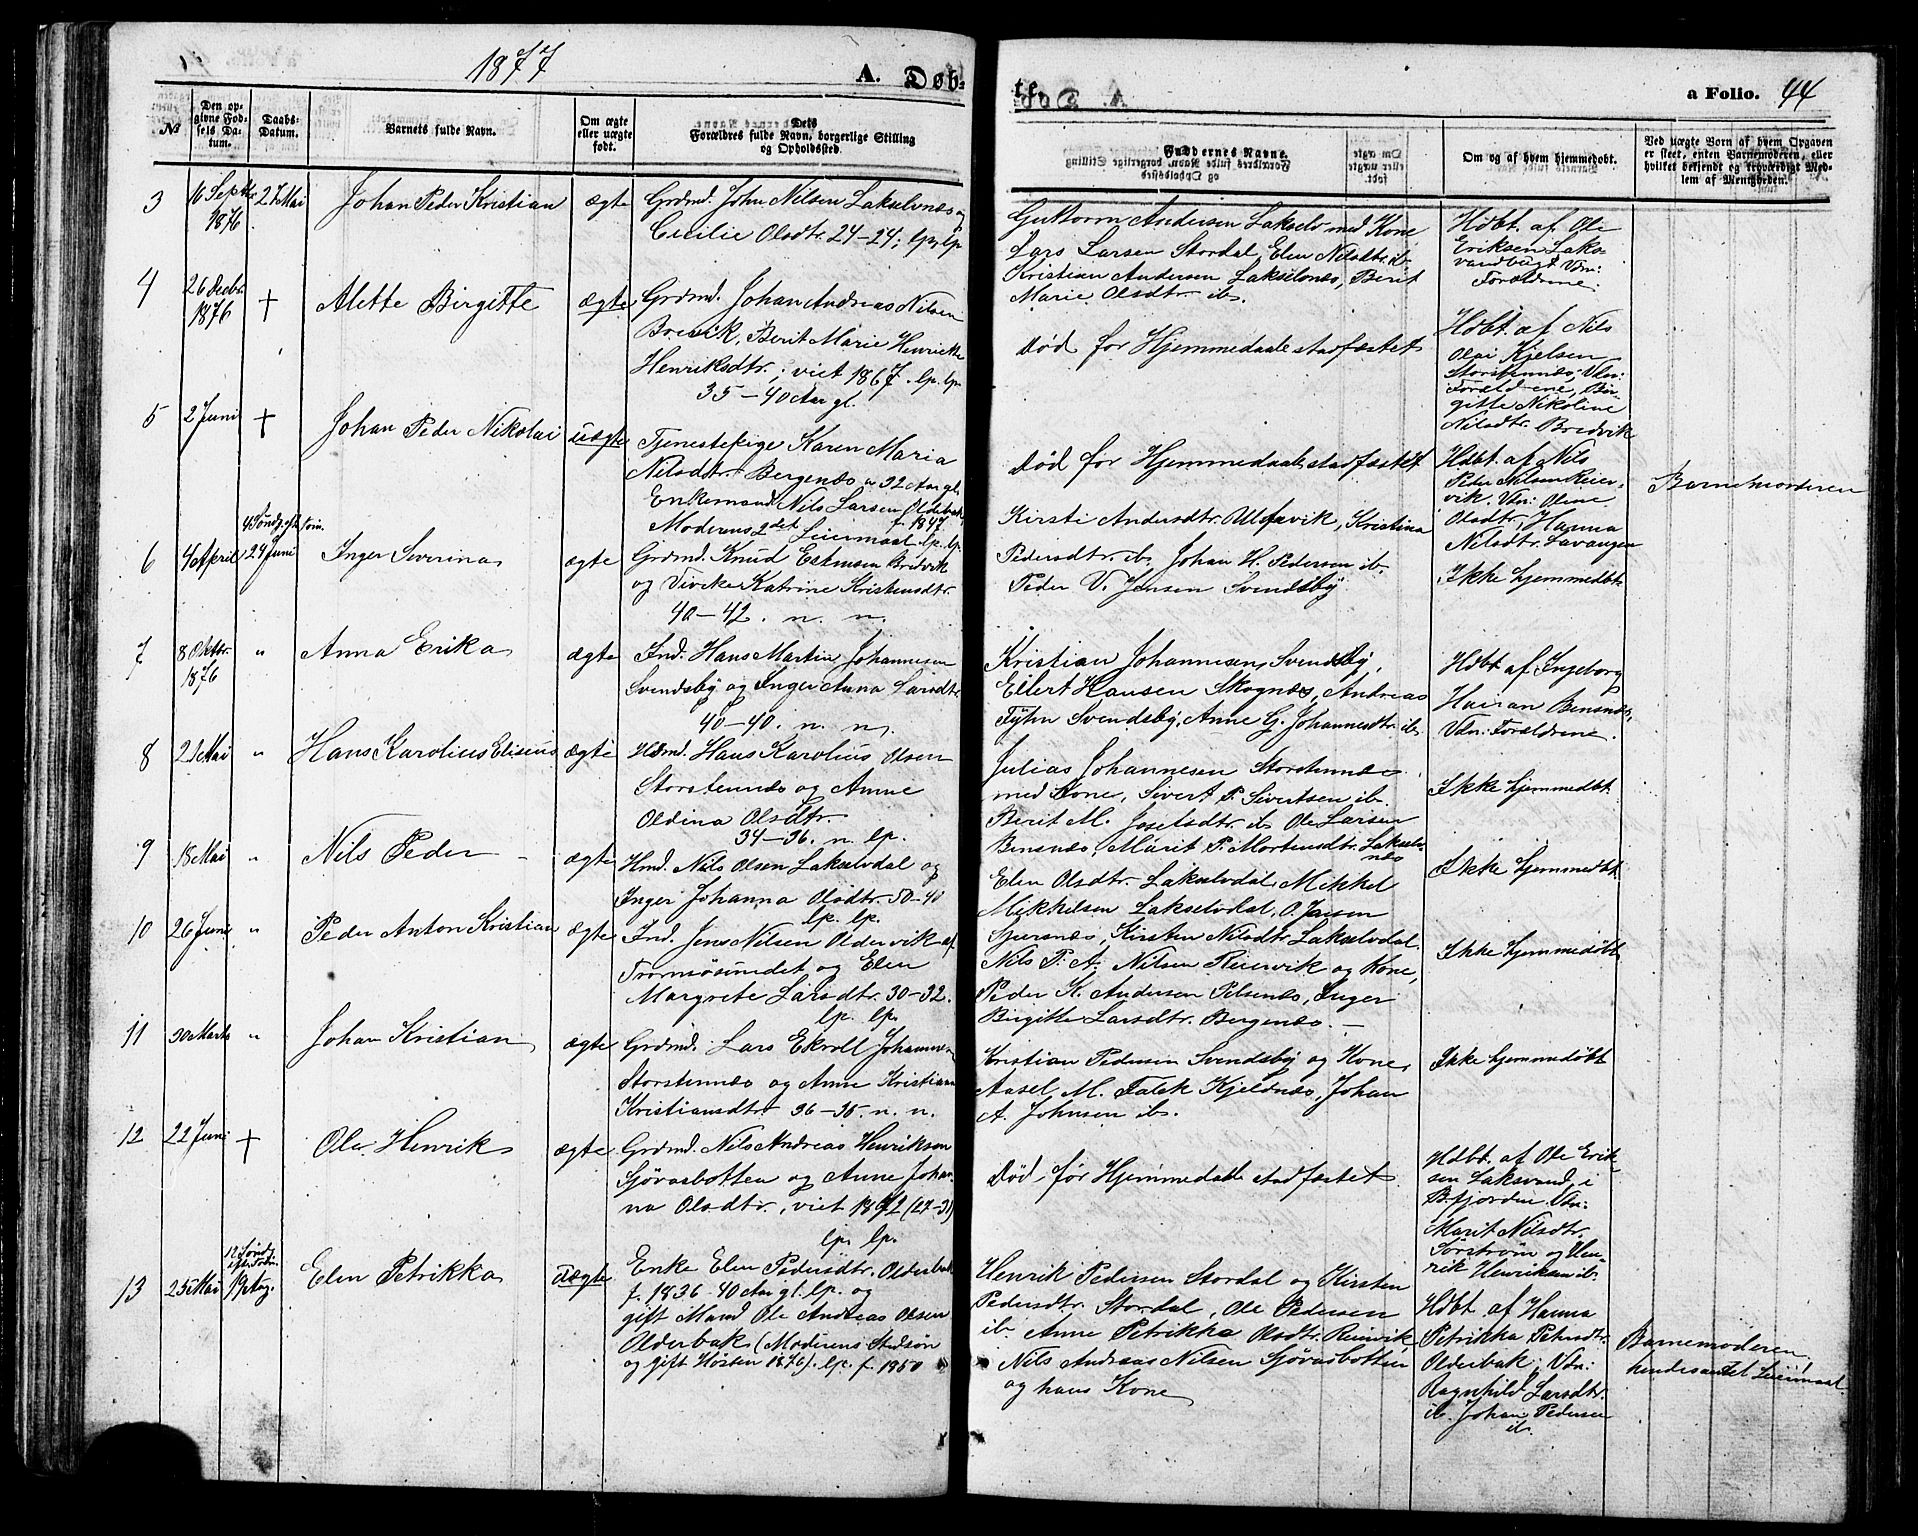 1877
A. Døb-
te.
a Folio. 44
№
Den op-
givne Fød-
sels Da-
tum.
Daabs-
Datum.
Barnets fulde Navn.
Om ægte
eller uægte
født.
Dets
Forældres fulde Navn, borgerlige Stilling
og Opholdssted.
Faddernes Navne.
Om og af hvem hjemmedøbt.
Ved uægte Børn af hvem Opgaven
er skeet, enten Barnemoderen, eller
hvilket bekjendt og troværdigt Med-
lem af Menigheden.
3
16 Septbr
1876
27 Mai
Johan Peder Kristian
ægte
Grdmd. John Nilsen Lakselvnæs og
Cecilie Olsdtr. 24-24; lp, lp
Guttorm Andersen Lakselv med Kone
Lars Larsen Stordal, Elen Nilsdtr ib.
Kristian Andersen Lakselvnæs, Berit
Marie Olsdtr ib.
Hdbt. af Ole
Eriksen Laks-
vandbugt Vdn:
Forældrene.
4
26 Decbr.
1876
+
Alette Birgitte
ægte
Grdmd. Johan Andreas Nilsen
Bredvik, Berit Marie Henrikke
Henriksdtr.; viet 1867. lp. lp.
35-40 Aar gl.
Død før Hjemmedaab stadfæstet
Hdbt. af Nils
Olai Kjelsen
Storstennæs; Vdn:
Forældrene, Bir-
gitte Nikoline
Nilsdtr. Bredvik
5
2 Juni
+
Johan Peder Nikolai
uægte
Tjenestepige Karen Maria
Nilsdtr. Bergenæs 32 Aar gl.
Enkemand Nils Larsen Olderbak
f. 1847.
Moderens 2det Leiermaal lp. lp.
Død før Hjemmedaab stadfæstet
Hdbt. af Nils
Peder Nilsen Reier-
vik. Vdn: Oline
Olsdtr, Hanna
Nilsdtr. Lavangen
Barnemoderen
6
4 April
4 Søndg. eft. Trin.
24 Juni
Inger Severina
ægte
Grdmd. Knud Estensen Bredvik
og Vivike Katrine Kristensdtr.
40-42. n. n.
Kirsti Andersdtr. Ulfsvik, Kristina
Pedersdtr. ib, Johan H. Pedersen ib.
Peder V. Jensen Svendsby.
Ikke hjemmedbt.
7
8 Oktbr.
1876
"
Anna Erika
ægte
Ind. Hans Martin Johannesen
Svendsby og Inger Anna Larsdtr.
40-40. n. n.
Kristian Johannesen Svendsby,
Eilert Hansen Skognæs, Andreas
Fyhn Svendsby, Anne G. Johannesdtr. ib.
Hdbt. af Ingeborg
Hairan Bensnæs,
Vdn: Forældrene.
8
21 Mai
"
Hans Karolius Elisæus
ægte
Hdmd. Hans Karolius Olsen
Storstennæs og Anne
Oldina Olsdtr.
34-36. n. lp.
Julias Johannesen Storstennæs
med Kone, Sivert P. Sivertsen ib.
Berit M. Josefsdtr. ib Ole Larsen
Bensnæs, Marit P. Mortensdtr. Lakselv-
næs
Ikke hjemmedbt.
9
18 Mai
"
Nils Peder
ægte
Hmd. Nils Olsen Lakselvdal og
Inger Johanna Olsdtr. 50-40
lp. lp.
Elen Olsdtr. Lakselvdal, Mikkel
Mikkelsen Lakselvdal, O. Jansen
Sjursnæs, Kirsten Nilsdtr Lakselvdal.
Ikke hjemmedbt.
10
26 Juni
"
Peder Anton Kristian
ægte
Ind. Jens Nilsen Oldervik af
Tromsøsundet og Elen
Margrete Larsdtr. 30-32.
lp. lp.
Nils P. A. Nilsen Reiervik og Kone,
Peder K. Andersen Pilsenæs, Inger
Birgitte Larsdtr. Bergenæs.
Ikke hjemmedøbt
11
30 Marts
"
Johan Kristian
ægte
Grdmd. Lars Ekroll Johannesen
Storstennæs og Anne Kristiane
Kristiansdtr 36-35. n. n.
Kristian Pedersen Svendsby og Kone,
Aasel M. Falck Kjelsnæs, Johan
A. Johnsen ib.
Ikke hjemmedøbt
12
22 Juni
+
Ole Henrik
ægte
Grdmd. Nils Andreas Henriksen
Sjøvasbotten og Anne Johan-
na Olsdtr., viet 1872 (27-31)
lp. lp.
Død før Hjemmedaab stadfæstet.
Hdbt. af Ole Erik-
sen Laksvand i
B.fjorden. Vdn:
Marit Nilsdtr.
Sørstrøm og Hen-
rik Henriksen ib.
13
25 Mai
12 Søndg.
eft. Trin.
19 Aug.
Elen Petrikka
uægte
Enke Elen Pedersdtr. Olderbak
f. 1836-40 Aar gl. lp. og
gift Mand Ole Andreas Olsen
Olderbak (Moderens Stedsøn
og gift Høsten 1876). lp. f. 1850
Henrik Pedersen Stordal og Kirsten
Pedersdtr. Stordal, Ole Pedersen
ib. Anne Petrikka Olsdtr. Reiervik,
Nils Andreas Nilsen Sjøvasbotten
og hans Kone
Hdbt. af Hanna
Petrikka Petersdtr.
Olderbak; Vdn:
Ragnhild Larsdtr.
ib. Johan Pedersen
ib.
Barnemoderen
hendes andet Leiermaal